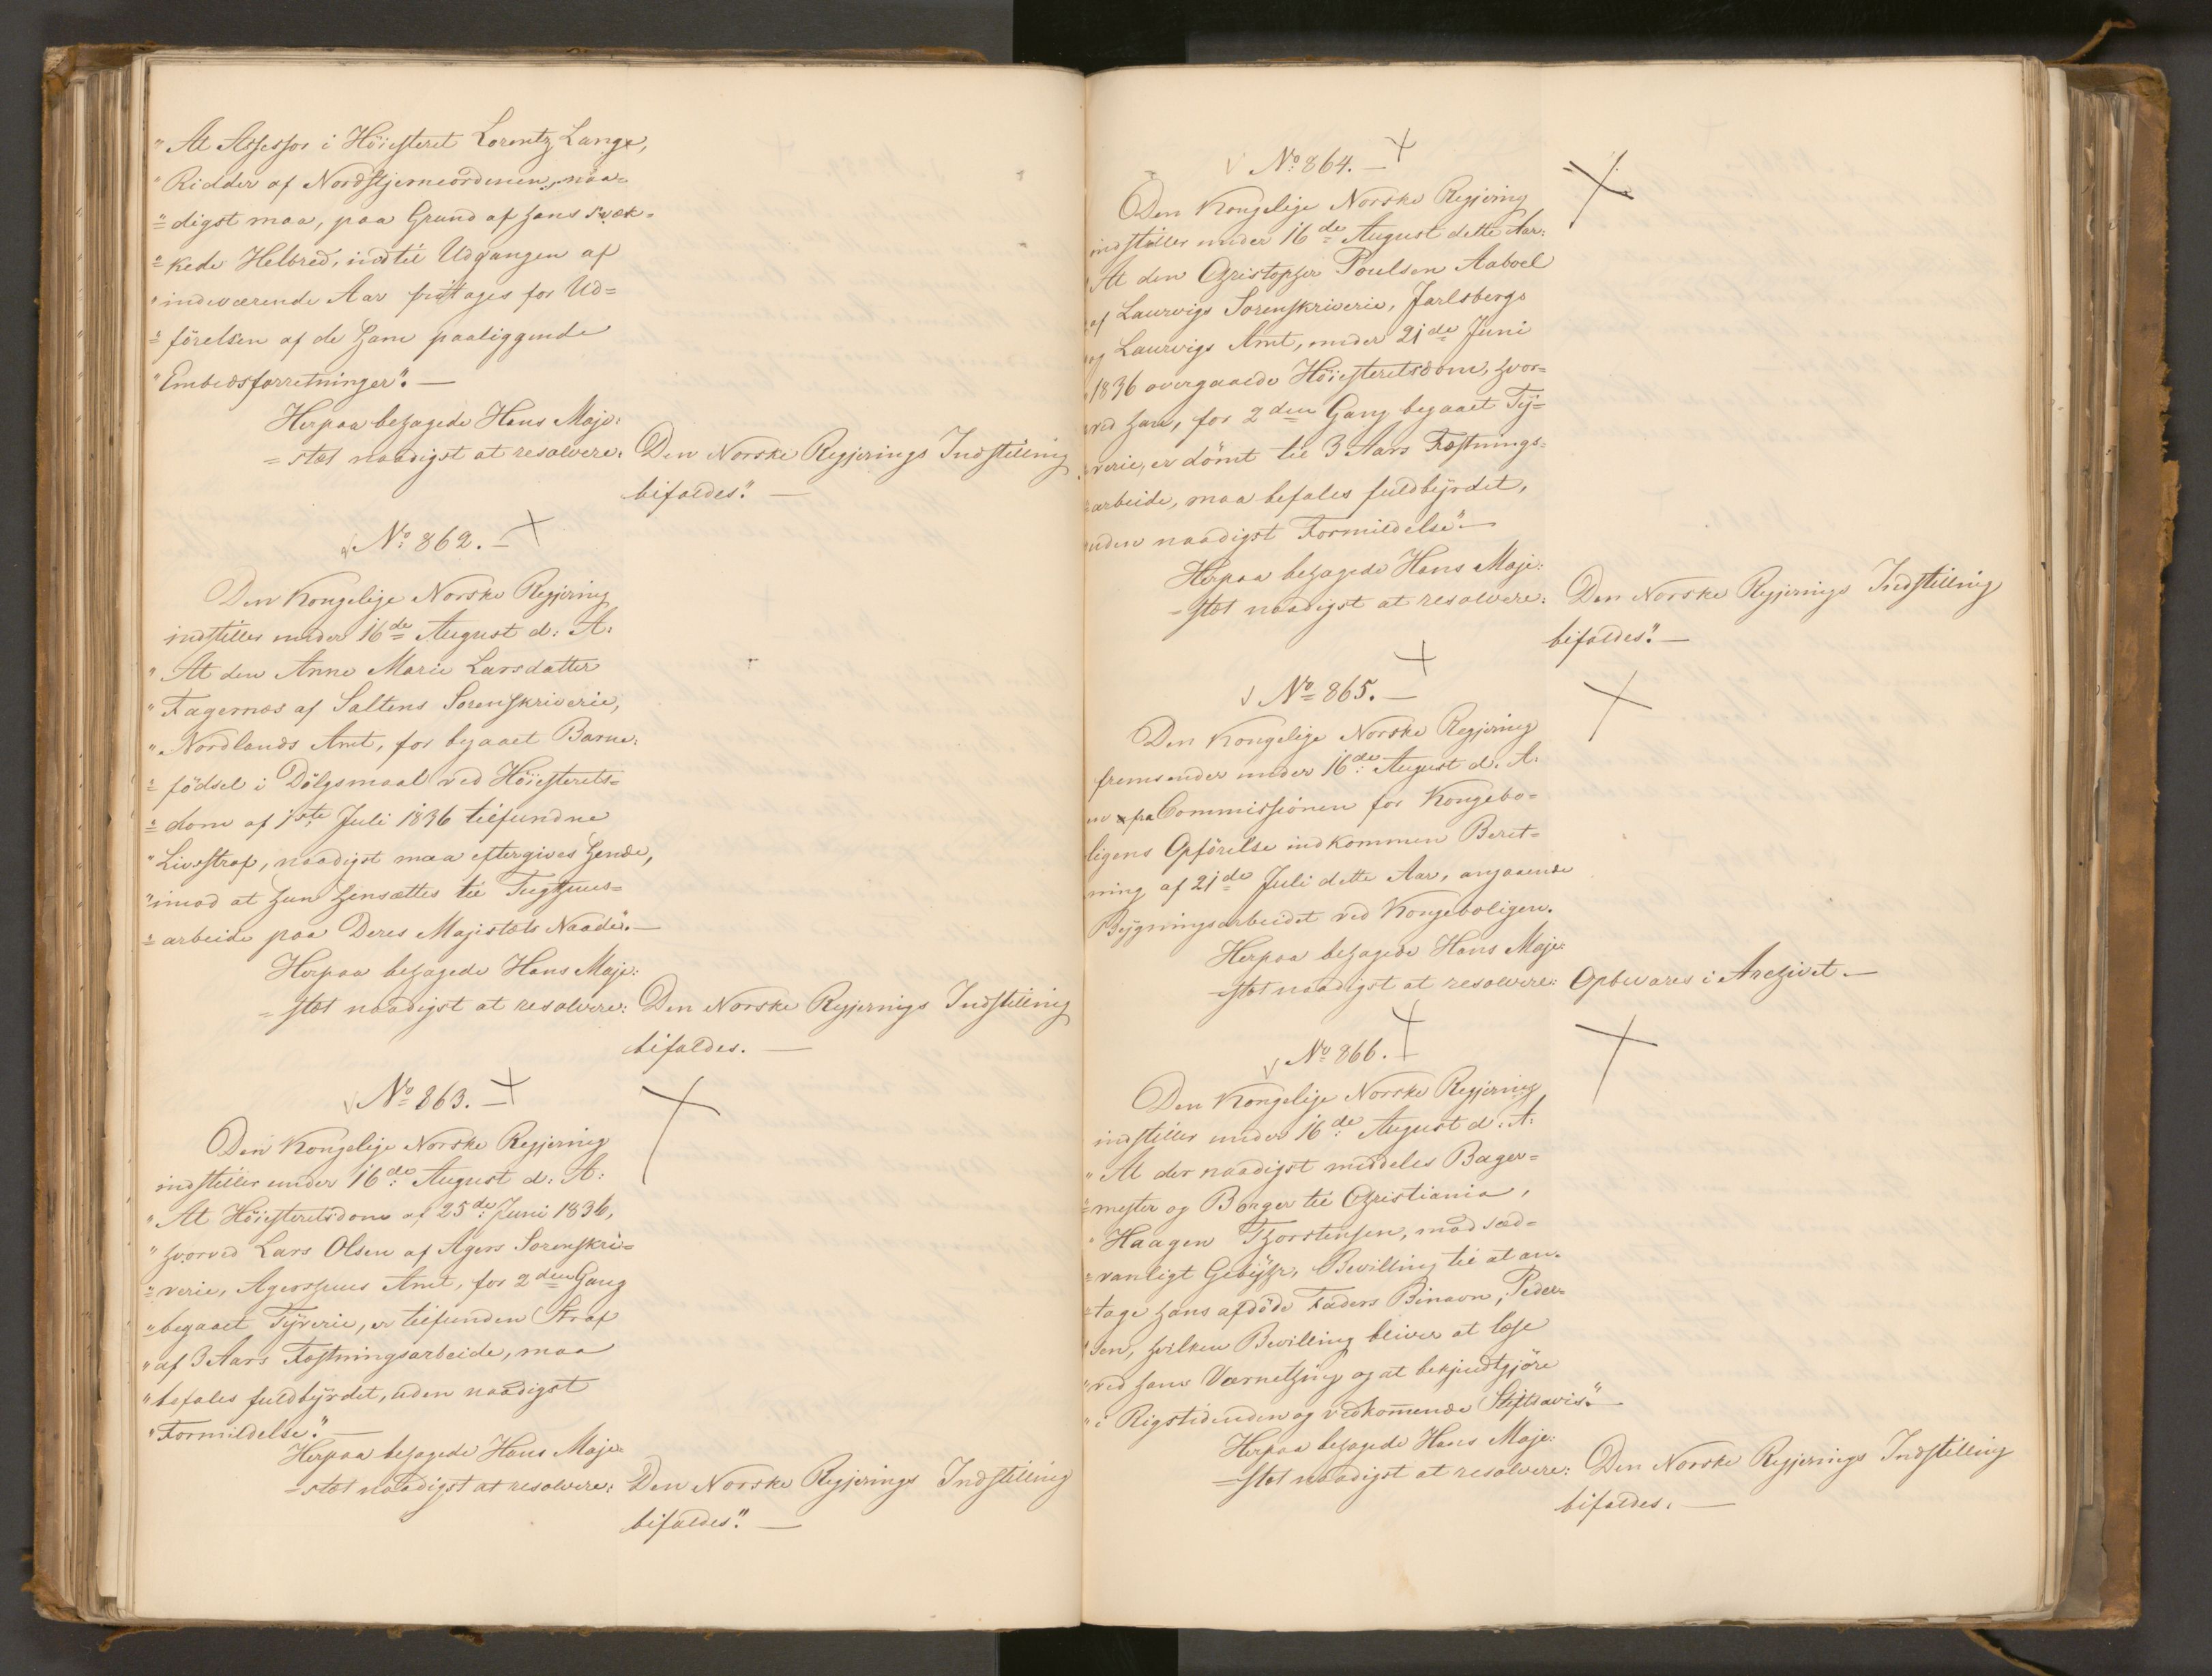 "At Assessor i Höiesteret Lorentz Lange,
"Ridder af Nordstjerneordenen, naa-
"digst maa, paa Grund af hans svæk-
"kede Helbred, indtil Udgangen af
"indeværende Aar fritages for Ud=
"förelsen af de ham paaliggende
"Embedsforretninger". —
Herpaa behagede Hans Maje-
=stæt naadigst at resolvere: Den Norske Regjerings Indstilling
bifaldes". —
No 862. —
Den Kongelige Norske Regjering
indstiller under 16de August d: A:
"At den Anne Marie Larsdatter
"Fagernæs af Saltens Sorenskriverie,
"Nordlands Amt, for begaaet Barne-
"födsel i Dölgsmaal ved Höiesterets=
"dom af 1ste Juli 1836 tilfundne
"Livsstraf, naadigst maa eftergives hende,
"imod at hun hensættes til Tugthuus=
"arbeide paa Deres Majestæts Naade". —
Herpaa behagede Hans Maje-
=stæt naadigst at resolvere: Den Norske Regjerings Indstilling
bifaldes. —
No 863. —
Den Kongelige Norske Regjering
indstiller under 16de August d: A:
"At Höiesteretsdom af 25de Juni 1836,
"hvorved Lars Olsen af Agers Sorenskri=
"verie, Agershuus Amt, for 2den Gang
"begaaet Tyverie, er tilfunden Straf
"af 3 Aars Fæstningsarbeide, maa
"befales fuldbyrdet, uden naadigst
"Formildelse". —
Herpaa behagede Hans Maje-
=stæt naadigst at resolvere: Den Norske Regjerings Indstilling
bifaldes". —
No 864. —
Den Kongelige Norske Regjering
indstiller under 16de August dette Aar:
"At den Christopher Poulsen Aaboel
"af Laurvigs Sorenskriverie, Jarlsbergs
"og Laurvigs Amt, under 21de Juni
"1836 overgaaede Höiesteretsdom, hvor=
"ved han, for 2den Gang begaaet Ty=
"verie, er dömt til 3 Aars Fæstnings=
"arbeide, maa befales fuldbyrdet,
"uden naadigst Formildelse" —
Herpaa behagede Hans Maje-
=stæt naadigst at resolvere: Den Norske Regjerings Indstilling
bifaldes". —
No 865. —
Den Kongelige Norske Regjering
fremsender under 16de August d. A.
en fra Commissionen for Kongebo=
ligens Opförelse indkommen Beret=
ning af 21de Juli dette Aar, angaaende
Bygningsarbeidet ved Kongeboligen.
Herpaa behagede Hans Maje-
=stæt naadigst at resolvere: Opbevares i Archivet —
No 866.
Den Kongelige Norske Regjering
indstiller under 16de August d. A:
"At der naadigst meddeles Bager=
"mester og Borger til Christiania,
"Haagen Thorstensen, mod sæd=
"vanligt Gebyhr, Bevilling til at an-
"tage hans afdöde Faders Binavn, Peder=
"sen, hvilken Bevilling bliver at læse
"ved hans Værnething og at bekjendtgjöre
"i Rigstidenden og vedkommende Stiftsavis". —
Herpaa behagede Hans Maje-
=stæt naadigst at resolvere: Den Norske Regjerings Indstilling
bifaldes. —